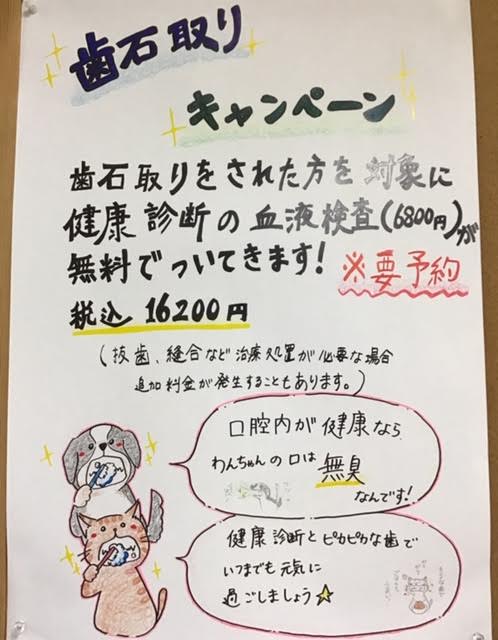 歯石取り
キャンペーン
歯石取りをされた方を対象に
健康診断の血液検査(6800円)が
無料でついてきます!
※要予約
税込 16200円
(抜歯、縫合など治療処置が必要な場合
追加料金が発生することもあります。)
口腔内が健康なら
わんちゃんの口は無臭
なんです!
健康診断とピカピカな歯で
いつまでも元気に
過ごしましょう☆